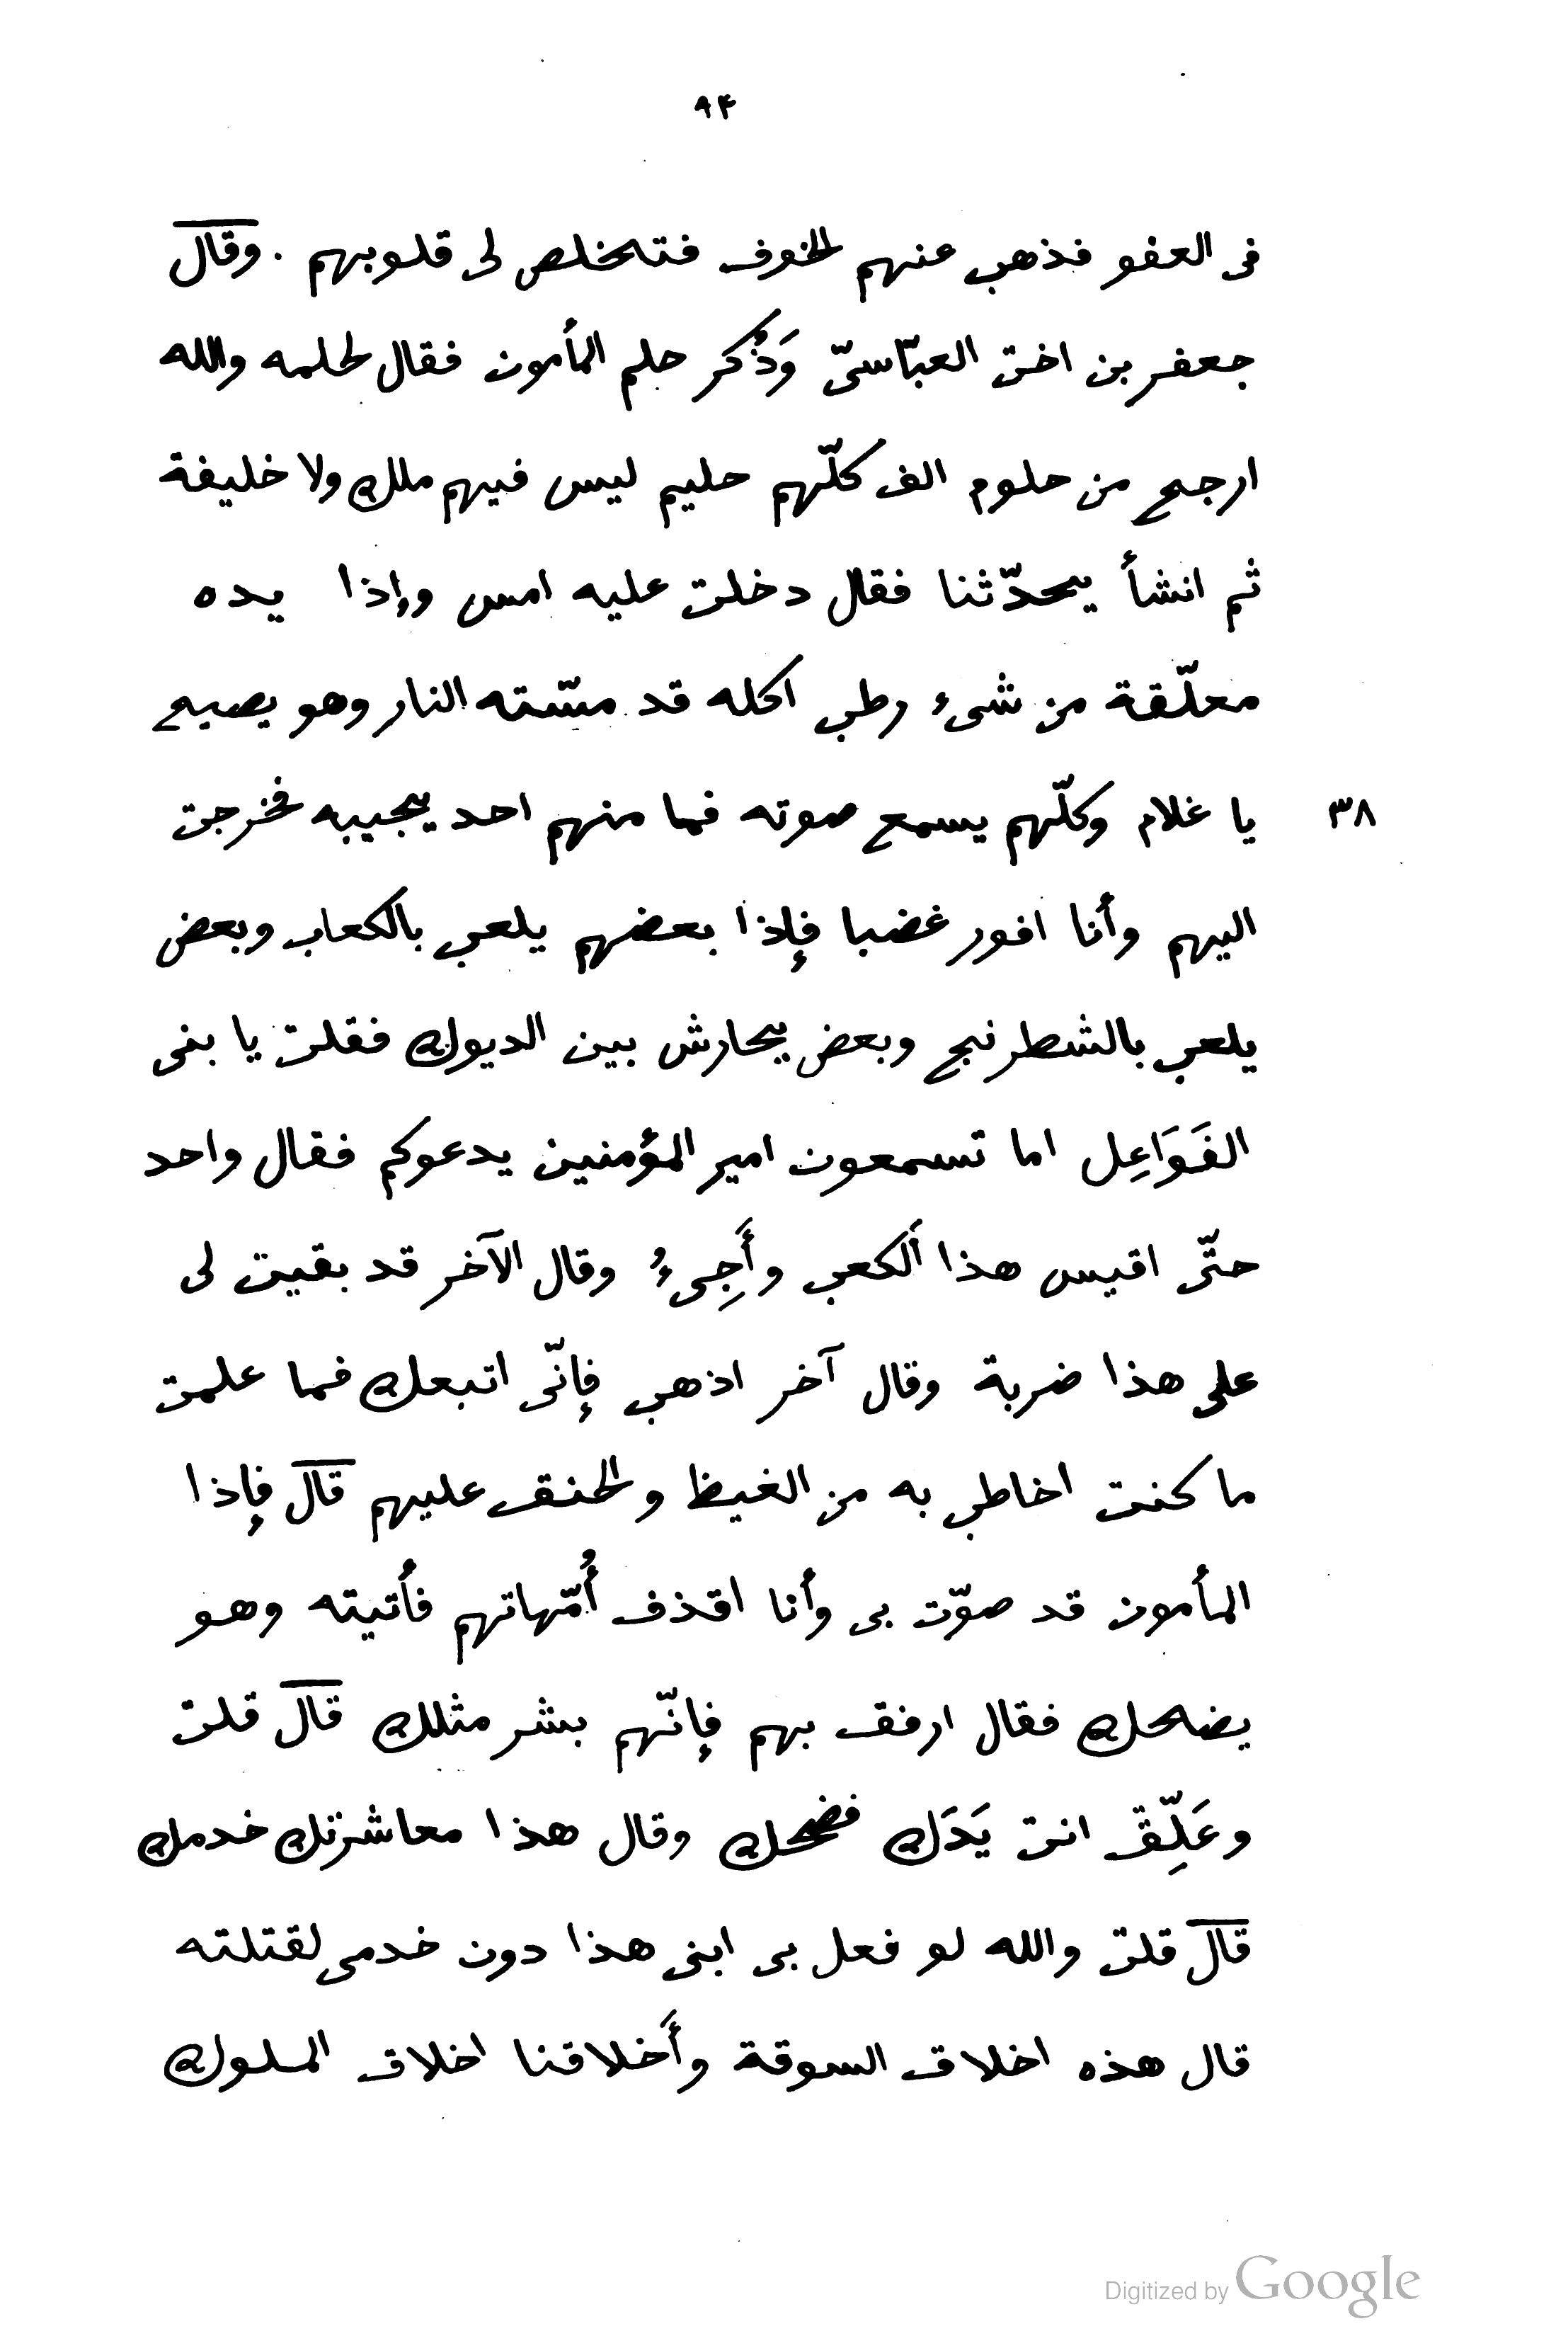 ٩٤
فى العفو فذهب عنهم الخوف فتخلص لى قلوبهم . وقال
جعفر بن اخت العبّاسىّ وَذُكر حلم المأمون فقال لحلمه والله
ارجح من حلوم الف كلّهم حليم ليس فيهم ملك ولا خليفة
ثم انشأ يحدّثنا فقال دخلت عليه امس وإذا يده
معلّقة من شىء رطب اكله قد مسّته النار وهو يصيح
٣٨ يا غلام وكلّهم يسمع صوته فما منهم احد يجيبه فخرجت
اليهم وأنا افور غضبا فإذا بعضهم يلعب بالكعاب وبعض
يلعب بالشطرنج وبعض يحارش بين الديوك فقلت يا بنى
الفَوَاعِل اما تسمعون امير المؤمنين يدعوكم فقال واحد
حتّى اقيس هذا ألكعب وأَجِىءُ وقال الآخر قد بقيت لى
على هذا ضربة وقال آخر اذهب فإنّى اتبعك فما علمت
ما كنت اخاطب به من الغيظ والحنق عليهم قال فإذا
المأمون قد صوّت بى وأنا اقذف أُمّهاتهم فأتيته وهو
يضحك فقال ارفق بهم فإنّهم بشر مثلك قال قلت
وعَلِّق انت يَدَك فضحك وقال هذا معاشرتك خدمك
قال قلت والله لو فعل بى ابنى هذا دون خدمى لقتلته
قال هذه اخلاق السوقة وأَخلاقنا اخلاق الملوك
Digitized by Google